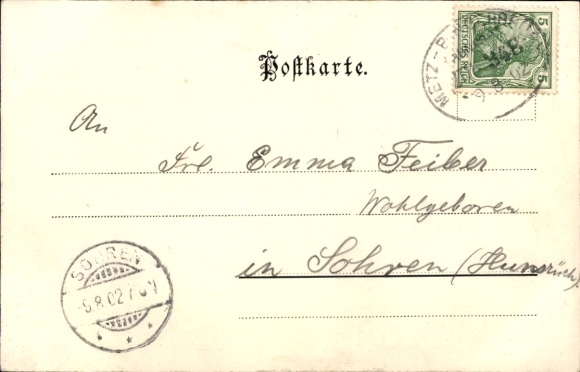 Postkarte.
5 5
DEUTSCHES REICH
METZ-
An
Frl. Emma Feiber
Wohlgeboren
in Sohren (Hunsrück).
SOHREN
-5.8.02.7